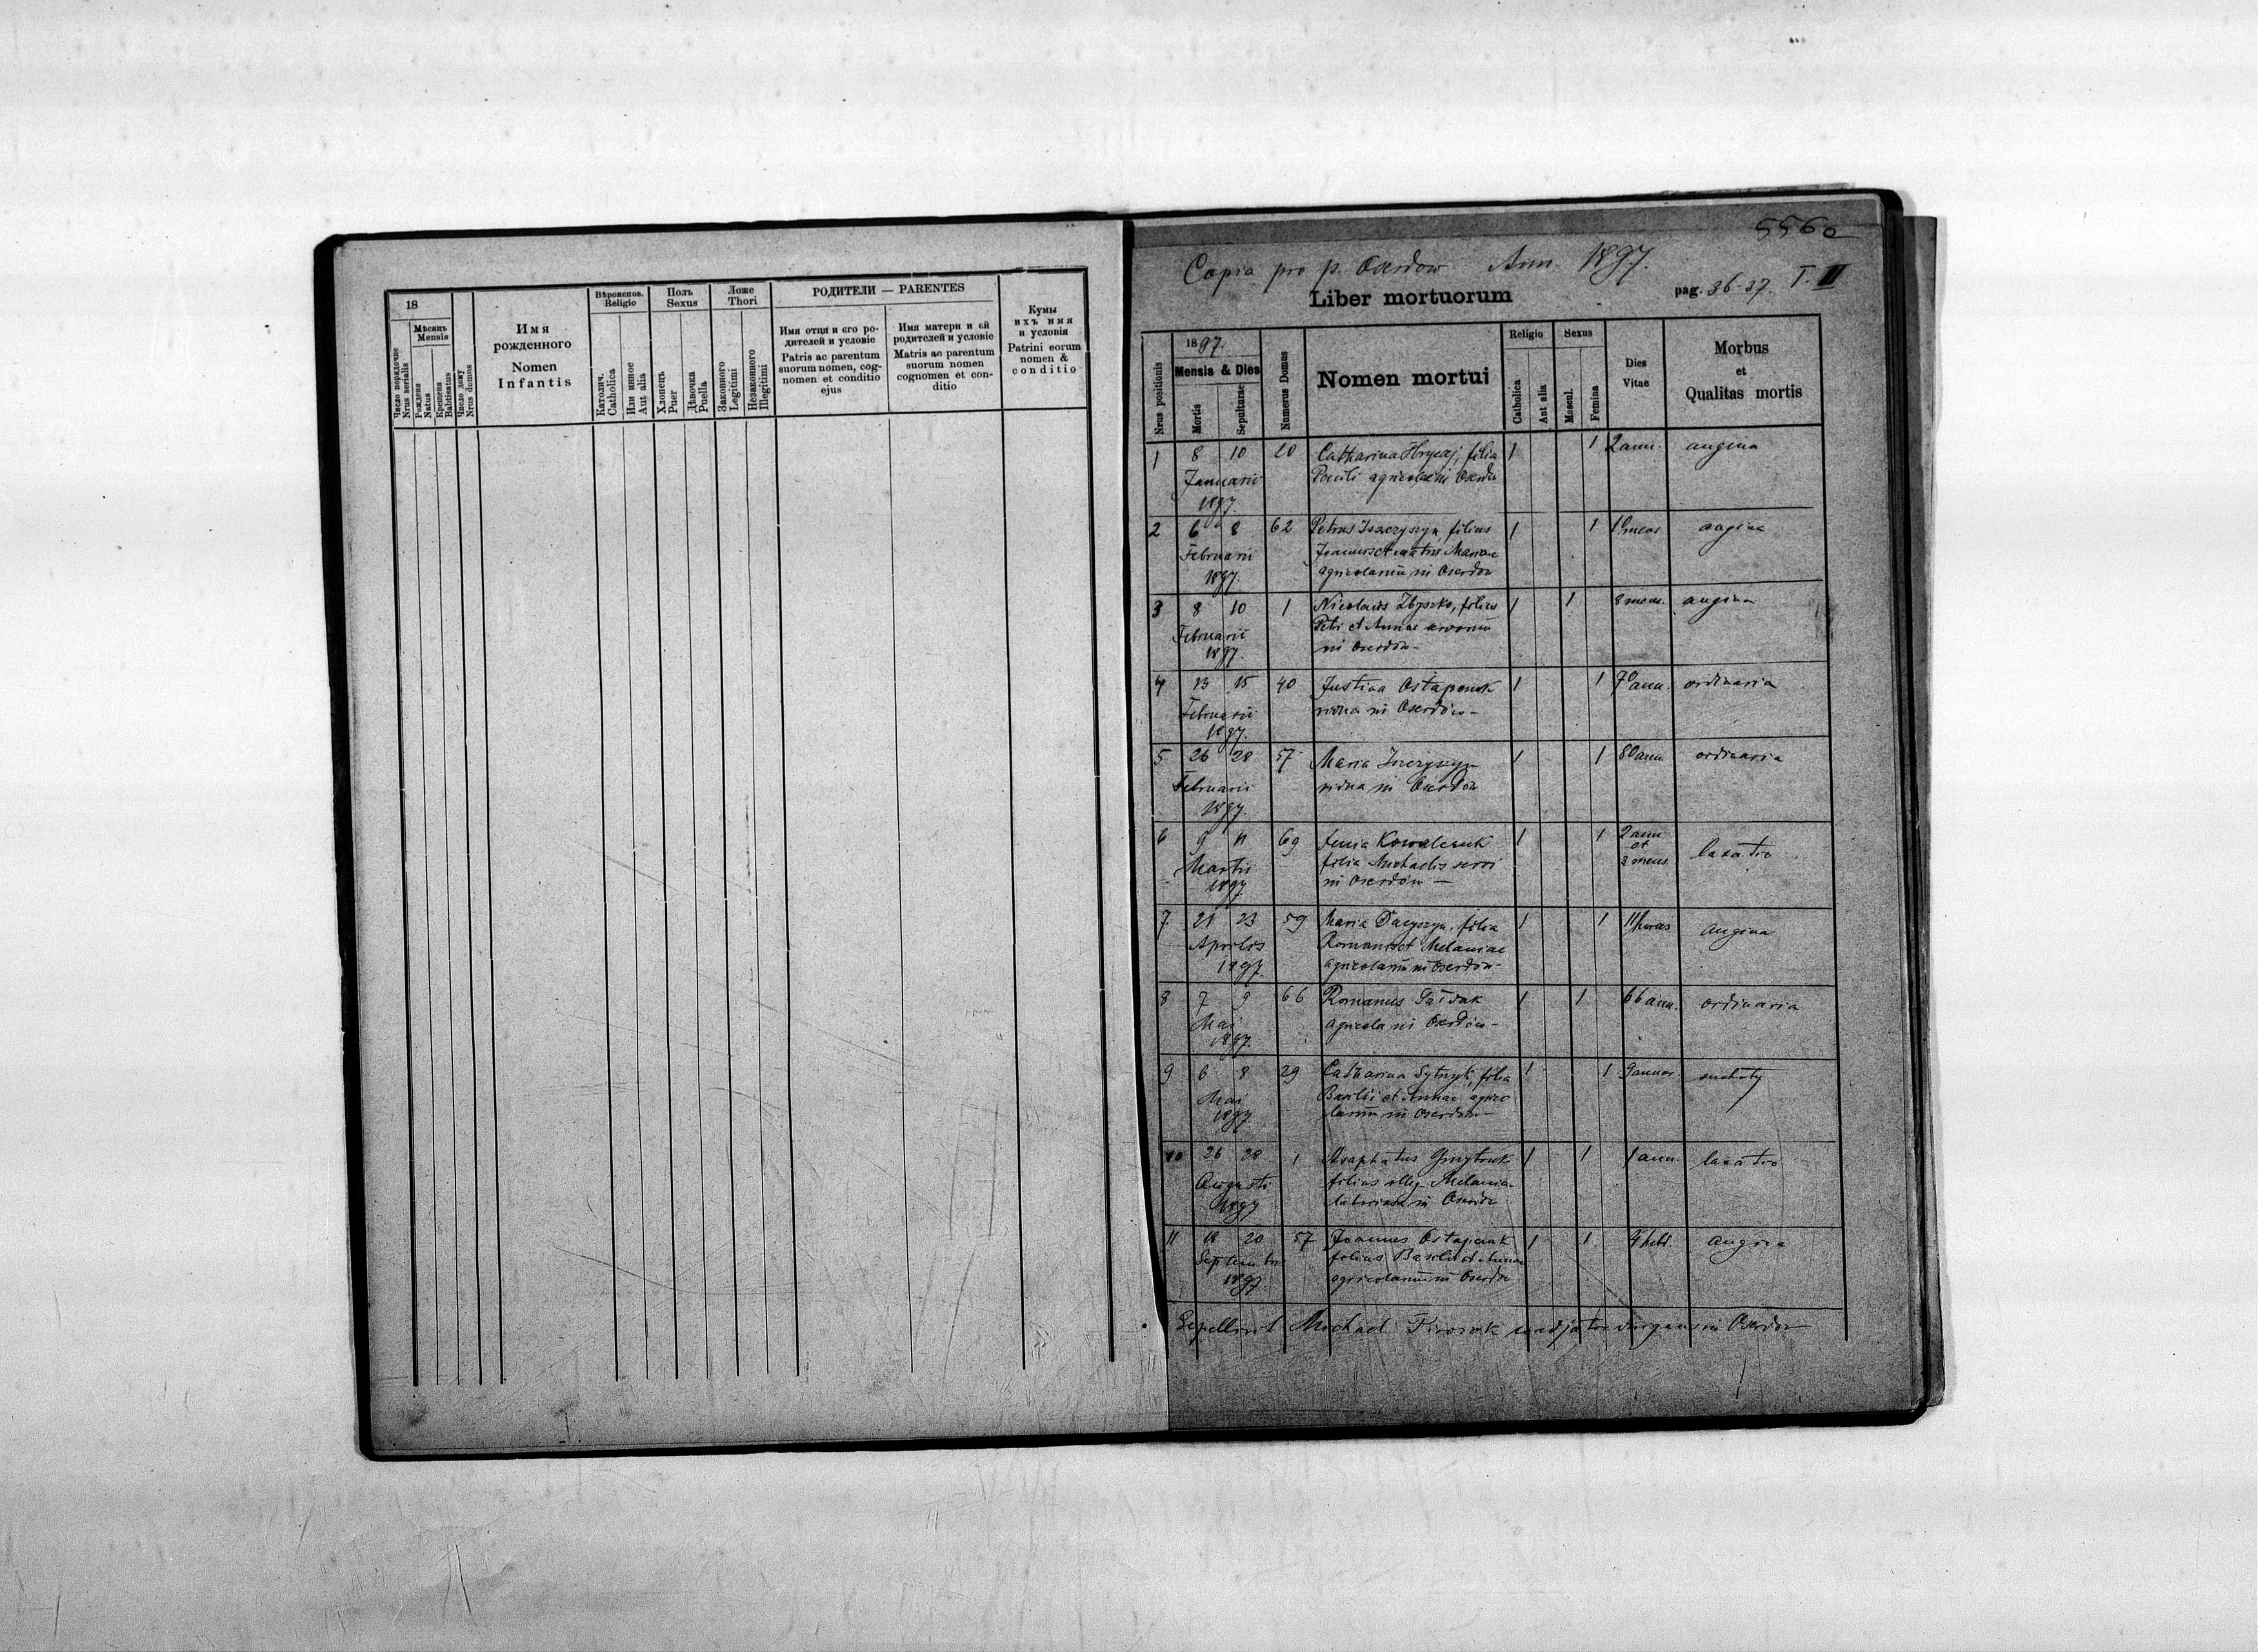 18
Число порядочне
Nrus serialis
Мѣсяцъ
Mensis
Рожденя
Natus
Крещеня
Babtisatus
Число дому
Nrus domos
Имя
рожденного
Nomen
Infantis
Вѣроиспов.
Religio
Католич.
Catholica
Или инное
Aut alia
Полъ
Sexus
Хлопець
Puer
Дѣвочка
Puella
Ложе
Thori
Законного
Legitimi
Незаконного
Illegitimi
РОДИТЕЛИ — PARENTES
Имя отця и єго ро-
дителей и условіє
Patris ac parentum
suorum nomen, cog-
nomen et conditio
ejus
Имя матери и єй
родителей и условіє
Matris ac parentum
suorum nomen
cognomen et con-
ditio
Кумы
ихъ имя
и условія
Patrini eorum
nomen &
conditio
556
Copia pro p. Oserdow Ann. 1897.
Liber mortuorum
pag. 36-37. T. II
Nrus positionis
1897.
Mensis & Dies
Mortis
Sepulturae
Numerus Domus
Nomen mortui
Religio
Catholica
Aut alia
Sexus
Mascul.
Femina
Dies
Vitae
Morbus
et
Qualitas mortis
1 8 10 20 Catharina Hrycaj, filia 1 1 2 ann. angina
Januarii Pauli agricolae in
1897.
2 6 8 62 Petrus Iszczyszyn, filius 1 1 angina
Februarii Joannis et Mariae
1897. agricolarum in Oserdow
3 8 10 1 Nicolaus Zbyszko, filius 1 1 8 mens. angina
Februarii Petri et Annae
1897. in Oserdow
4 13 15 40 Justina Ostapczuk 1 1 70 ann. ordinaria
Februarii vidua in Oserdów
1897.
5 26 28 57 Maria Iszczyszyn 1 1 80 ann. ordinaria
Februarii vidua in Oserdow
1897.
6 9 11 69 Kowalczuk 1 1 2 ann
et
2 mens. laxatio
Martii filia Michaelis servi
1897 in Oserdów
7 21 23 59 Maria Dacyszyn, filia 1 1 11 horas angina
Aprilis Romani et Melaniae
1897 agricolarum in Oserdów
8 7 9 66 Romanus 1 1 66 ann. ordinaria
Mai agricola in Oserdów
1897.
9 6 8 29 Catharina Sytnyk, filia 1 1 9 annor. suchoty
Mai Basilii et Annae agrico
1897. larum in Oserdów
10 26 28 1 1 1 1 ann. laxatio
Augusti filius illeg. Melaniae
1897 in
11 18 20 57 Joannes Ostapczuk 1 1 angina
Septembr filius Basilii et Annae
1897. agricolarum in Oserdow
Sepellivit Michael in Oserdow